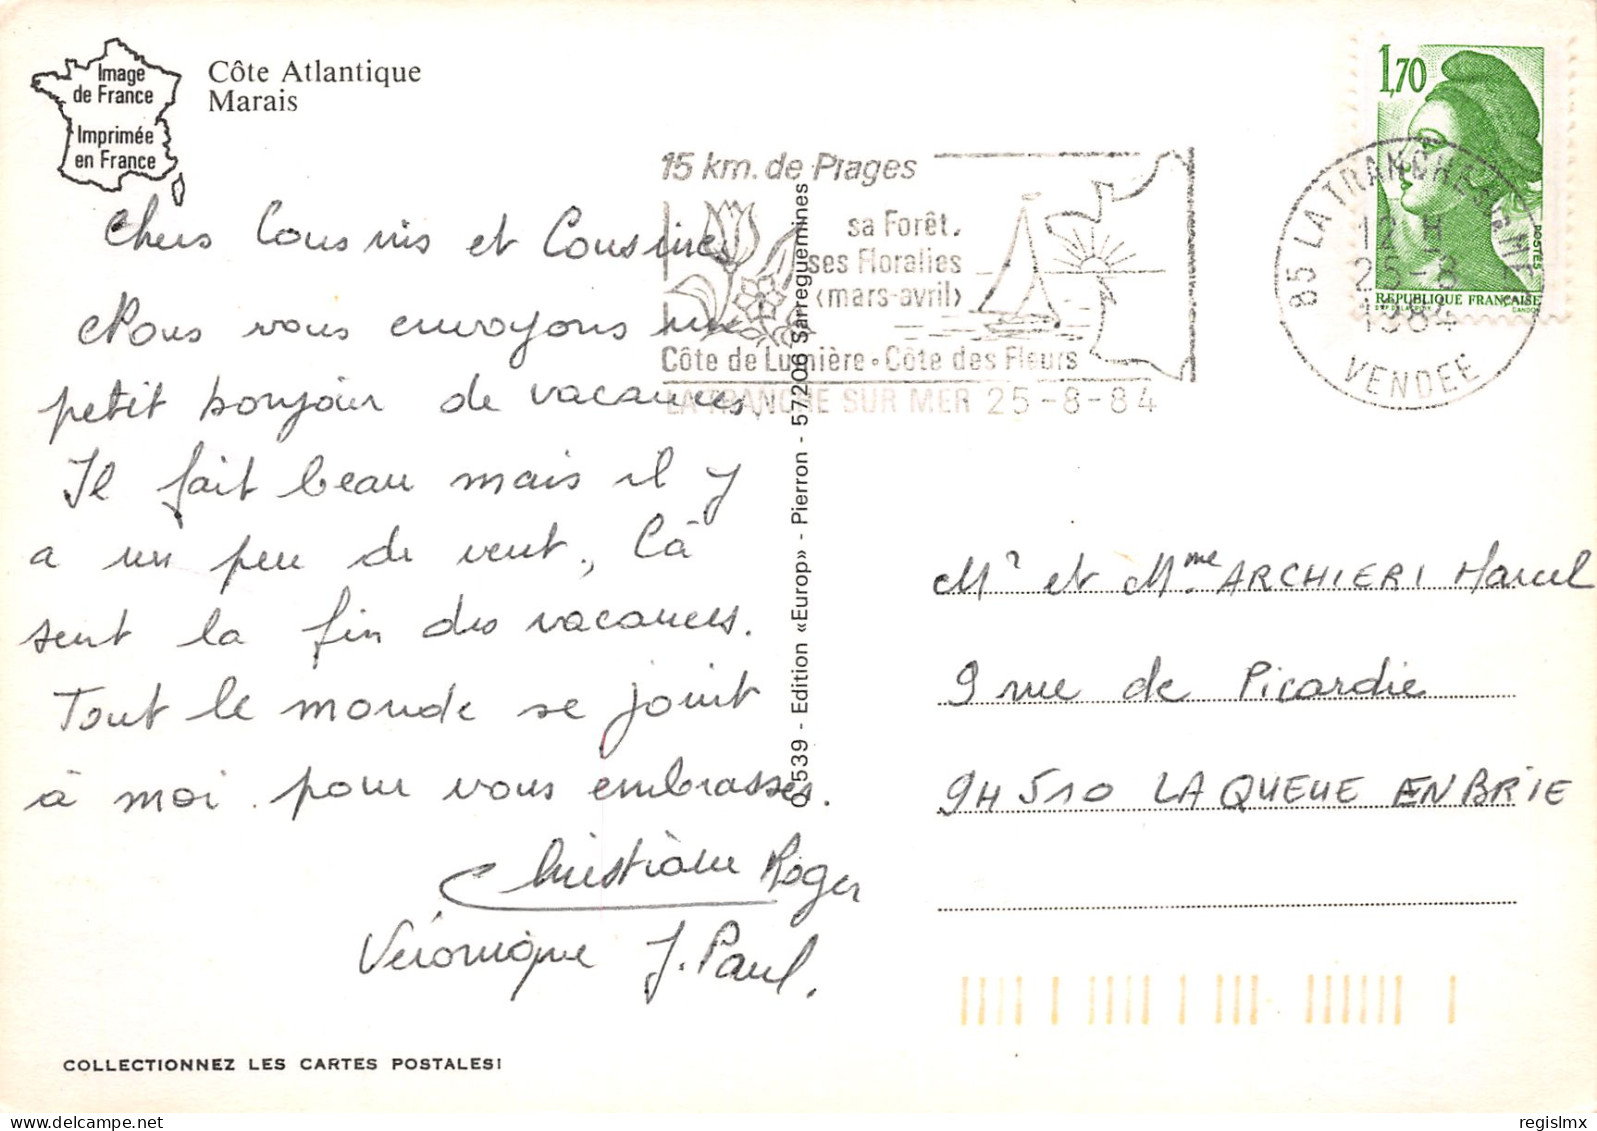 Image
de France
Imprimée
en France
Côte Atlantique
Marais
Chers Cousins et Cousines
Nous vous envoyons un
petit bonjour de vacances
Il fait beau mais il y
a un peu de vent, Cà
sent la fin des vacances.
Tout le monde se joint
à moi pour vous embrasses.
Christiane Roger
Véronique J. Paul.
COLLECTIONNEZ LES CARTES POSTALES!
539 - Edition «Europ» - Pierron - 57206 Sarreguemines
15 km. de Plages
sa Forêt.
ses Floralies
(mars-avril)
Côte de Lumière • Côte des Fleurs
LA TRANCHE SUR MER 25-8-84
1,70
POSTES
REPUBLIQUE FRANÇAISE
85 LA TRANCHE SUR MER
12 H
25-8
1984
VENDEE
Mr et Mme ARCHIERI Marcel
9 rue de Picardie
94510 LA QUEUE EN BRIE
regislmx